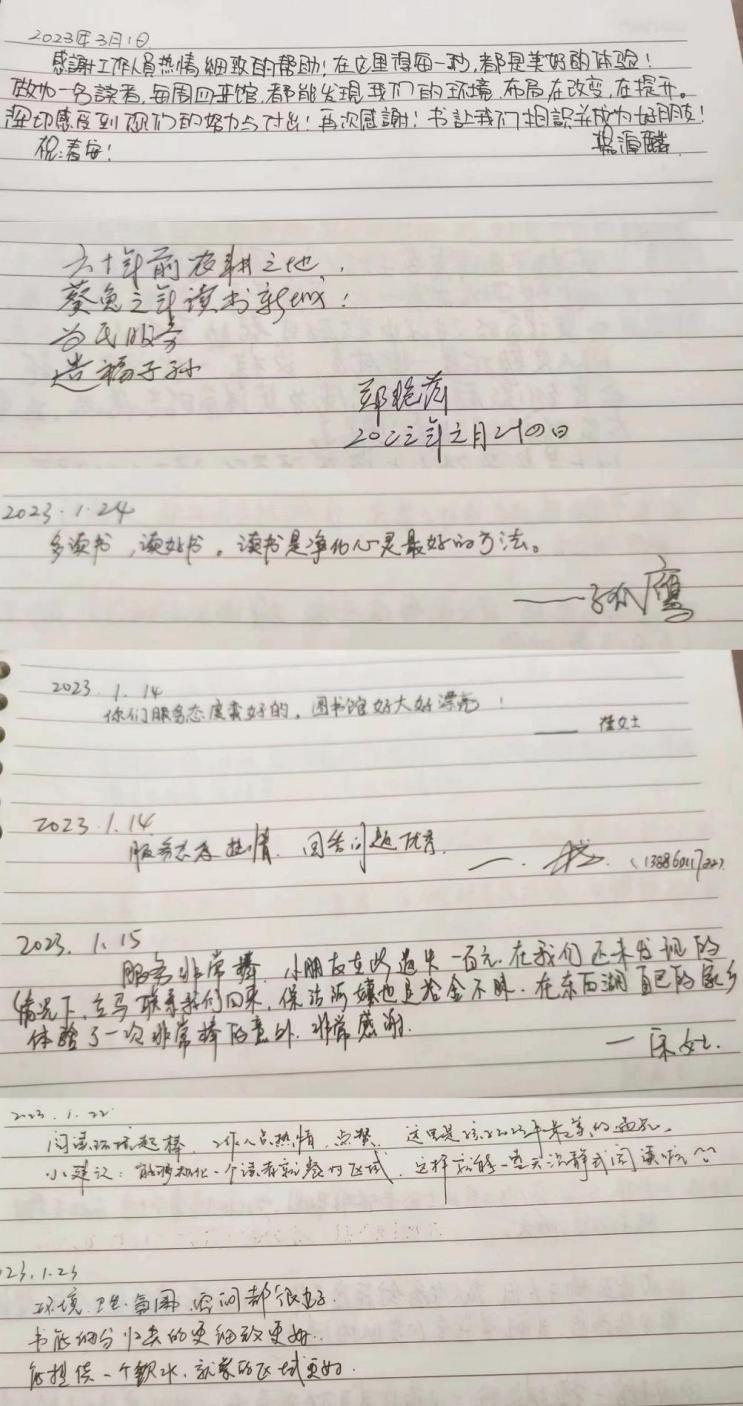 2023年3月1日
感謝工作人員热情細致的帮助！在这里得每一秒，都是美好的体驗！
做为一名読者，每周四来馆，都能发現我们的环境、布局在改变，在提升。
深切感受到你们的努力与付出！再次感謝！书让我们相識并成为好朋友！
祝：春安！
六十年前农耕之地，
葵兔之年读书新
为民服务
造福子孙
郑艳
2023年2月24日
2023.1.24
多读书，读好书。读书是净化心灵最好的方法。
——孙鹰
2023.1.14
你们服务态度蛮好的，图书馆好大好漂亮！
—— 崔女士
2023.1.14
服务态度热情、回答问题优秀
2023.1.15
服务非常棒、小朋友在此遗失一百元，在我们还未发现的
情况下，立马联系我们回来，保洁阿姨也是拾金不昧，在东西湖自己的家乡
体验了一次非常棒的意外，非常感谢。
—宋女士
2023.1.22
阅读环境超棒，工作人员热情，点赞，这里是2023年最美的
小建议：能够规化一个读者就餐的区域，这样就能一整天沉静式阅读啦
23.1.23
环境、卫生、氛围、空间都很好。
书能细分归类的更细致更好。
能提供一个飲水、就餐的区域更好。